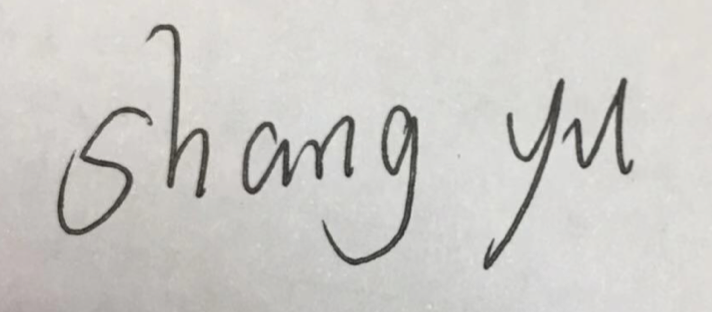 shang yu